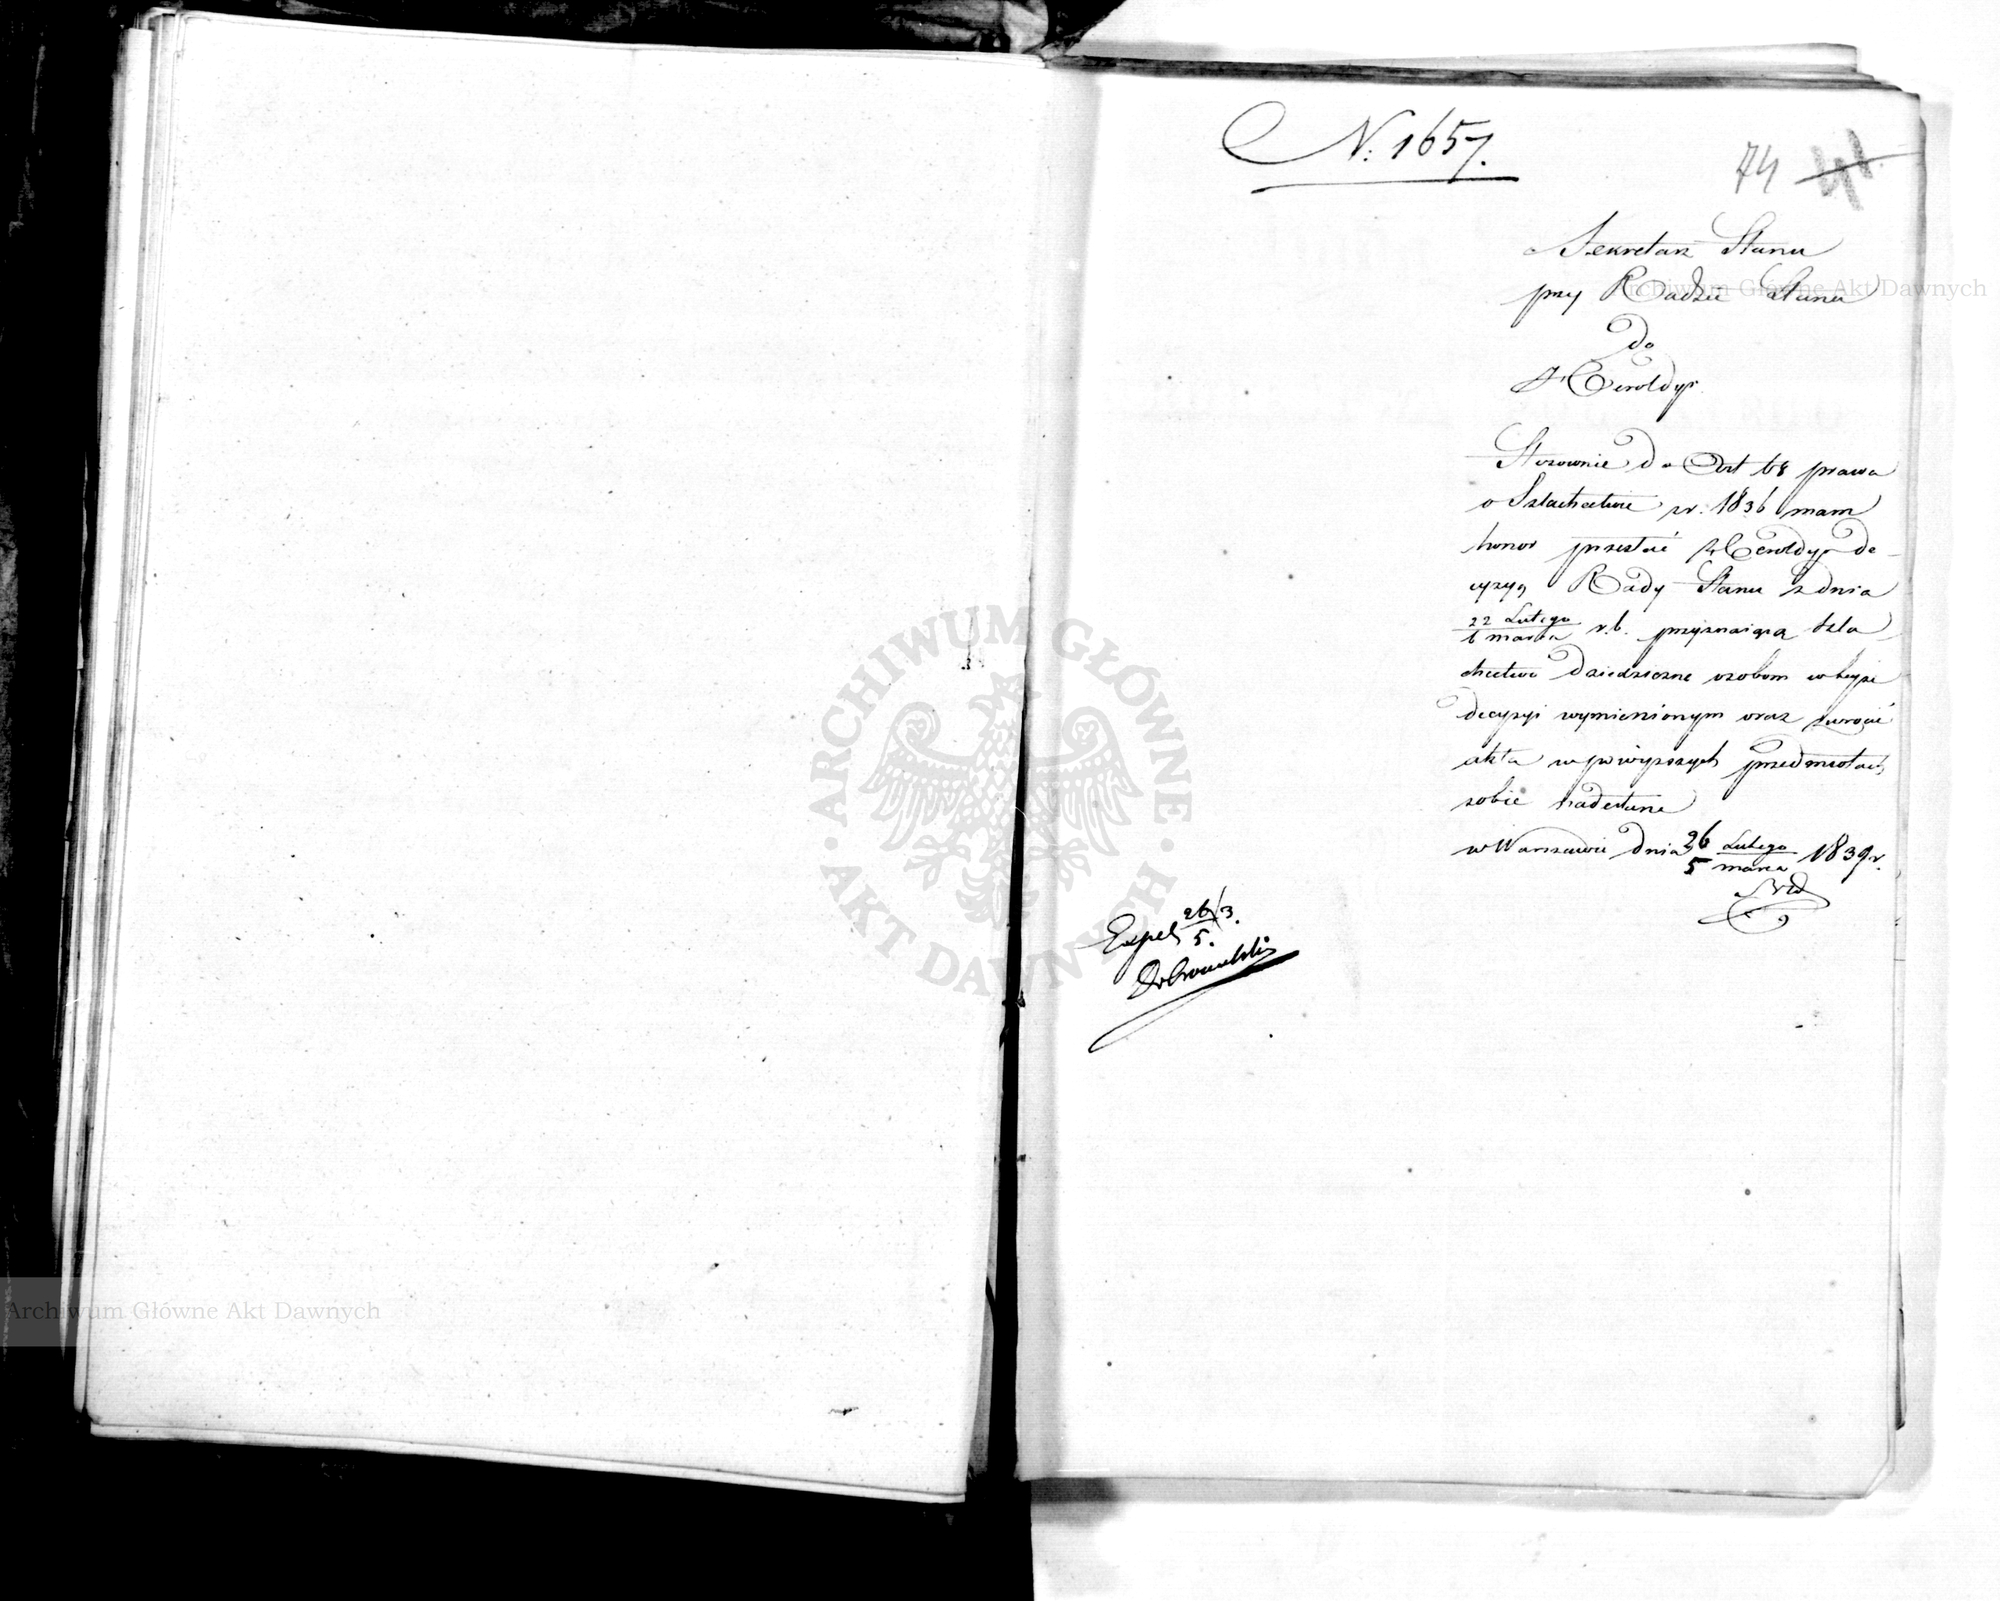 N: 1657.
74 41
Sekretarz Stanu
przy Radzie Stanu
do
Heroldyi
Stosownie do Art 68 prawa
o Szlachectwie z r. 1836 mam
honor przesłać Heroldyi de-
cyzyą Rady Stanu z dnia
22 Lutego
6 marca r. b. przyznaiącą szla
chectwo dziedziczne osobom w teyże
decyzyi wymienionym oraz zwrócić
akta w powyższych przedmiotach
sobie nadesłane
w Warszawie dnia 26 Lutego 1839 r.
5 marca
Exped 26/3.
5.
Dobrowolski
Archiwum Główne Akt Dawnych
ARCHIWUM GŁÓWNE · AKT DAWNYCH ·
Archiwum Główne Akt Dawnych